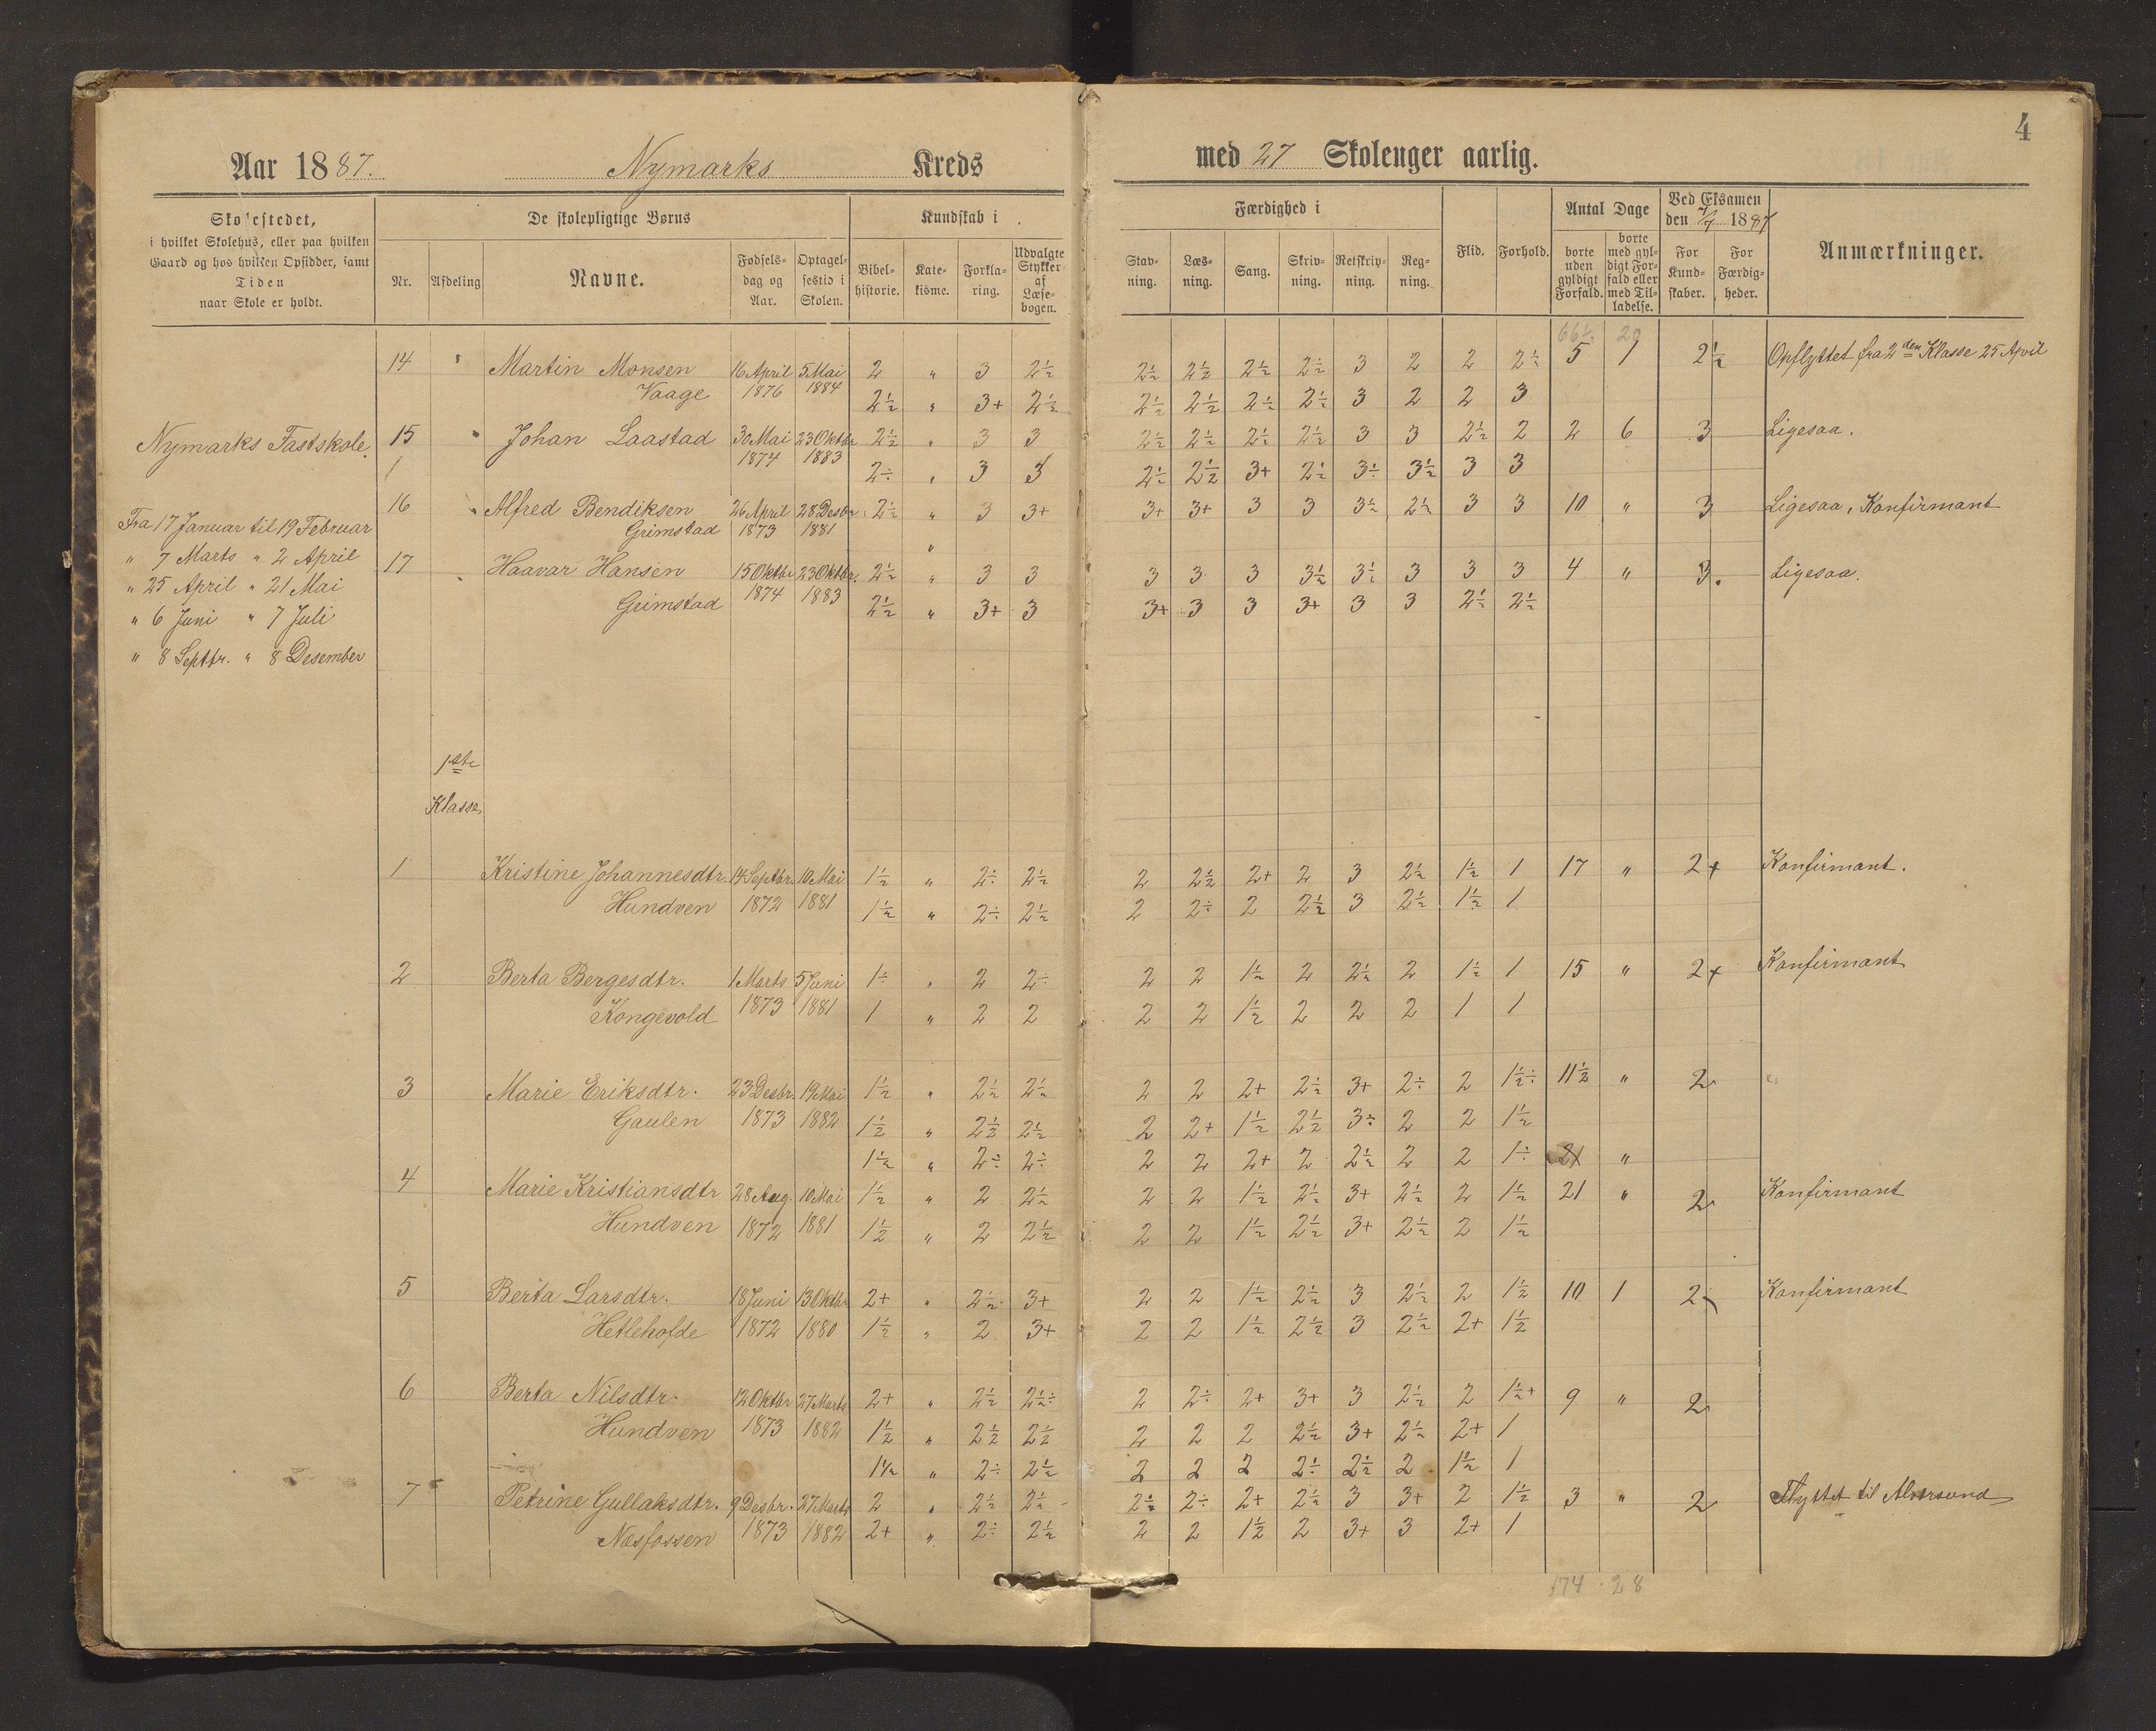 4
Aar 1887. Nymarks Kreds med 27 Skoleuger aarlig.
Skolestedet, i hvilket Skolehus, eller paa hvilken Gaard og hos hvilken Opsidder, samt Tiden naar Skole er holdt.
De skolepligtige Børns
Nr. Afdeling Navne. Fødsels-dag og Aar. Optagel-sestid i Skolen.
Kundskab i
Bibel-historie. Kate-kisme. Forkla-ring. Udvalgte Stykker af Læse-bogen.
Færdighed i
Stav-ning. Læs-ning. Sang. Skriv-ning. Retskriv-ning. Reg-ning. Flid. Forhold.
Antal Dage
borte uden gyldigt Forfald. borte med gyl-digt For-fald eller med Til-ladelse.
Ved Eksamen den 7/7 1887
For Kund-skaber. For Færdig-heder.
Anmærkninger.
Nymarks Fastskole.
Fra 17 Januar til 19 Februar
" 7 Marts " 2 April
" 25 April " 21 Mai
" 6 Juni " 7 Juli
" 8 Septbr. " 8 Desember
14 Martin Monsen 16 April 5 Mai 2 " 3 2½ 2½ 2½ 2½ 2½ 3 2 2 2½ 5 1 2½ Opflyttet fra 2den Klasse 25 April
Vaage 1876 1884 2½ " 3+ 2½ 2½ 2½ 2½ 2½ 3 2 2 3
15 Johan Laastad 30 Mai 23 Oktbr 2½ " 3 3 2½ 2½ 2½ 2½ 3 3 2½ 2 2 6 3 Ligesaa.
1874 1883 2÷ " 3 3 2½ 2½ 3+ 2½ 3÷ 3½ 3 3
16 Alfred Bendiksen 26 April 28 Desbr. 2½ " 3 3+ 3+ 3+ 3 3 3½ 2½ 3 3 10 " 3 Ligesaa, Konfirmant
Grimstad 1873 1881 "
17 Haavar Hansen 15 Oktbr 23 Oktbr. 2½ " 3 3 3 3 3 3½ 3½ 3 3 3 4 " 3. Ligesaa.
Grimstad 1874 1883 2½ " 3+ 3 3+ 3 3 3+ 3 3 2½ 2½
1ste
Klasse
1 Kristine Johannesdtr. 14 Septbr. 10 Mai 1½ " 2÷ 2½ 2 2½ 2+ 2 3 2½ 1½ 1 17 " 2+ Konfirmant.
Hundven 1872 1881 1½ " 2÷ 2½ 2 2÷ 2 2½ 3 2½ 1½ 1
2 Berta Bergesdtr. 1 Marts 5 Juni 1÷ " 2 2÷ 2 2 1½ 2 2½ 2 1½ 1 15 " 2+ Konfirmant
Kongevold 1873 1881 1 " 2 2 2 2 1½ 2 2 2 1 1
3 Marie Eriksdtr. 23 Desbr. 19 Mai 1½ " 2½ 2½ 2 2 2+ 2½ 3+ 2÷ 2 1½÷ 11½ " 2
Gaulen 1873 1882 1½ " 2½ 2½ 2 2+ 1½ 2½ 3÷ 2 2 1½
1½ " 2÷ 2÷ 2 2 2+ 2 2½ 2 2 1÷ 21 "
4 Marie Kristiansdtr 28 Aug. 10 Mai 1½ " 2 2½ 2 2 1½ 2½ 3+ 2½ 2 1½ 21 " 2 Konfirmant
Hundven 1872 1881 1½ " 2 2½ 2 2 1½ 2½ 3+ 2½ 2 1½
5 Berta Larsdtr. 18 Juni 13 Oktbr 2+ " 2½ 3+ 2 2 1½ 2½ 3 2½ 2 1½ 10 1 2 Konfirmant
Hetleholde 1872 1880 1½ " 2 3+ 2 2 1½ 2½ 3 2½ 2+ 1½
6 Berta Nilsdtr. 12 Oktbr 27 Marts 2+ " 2½ 2½÷ 2 2÷ 2+ 3+ 3 2½ 2 1½+ 9 " 2
Hundven 1873 1882 1½ " 2½ 2½ 2 2 2 2½ 3+ 2½ 2+ 1
1½ " 2÷ 2½ 2 2 2 2÷ 2½ 2 1½ 1
7 Petrine Gullaksdtr. 9 Desbr. 27 Marts 2 " 2½ 2½ 2½ 2÷ 2+ 2½ 3 3+ 2 1½ 3 " 2 Flyttet til Alversund
Næsfossen 1873 1882 2+ " 2÷ 2½ 2 2 1½ 2 3+ 3 2+ 1
174 28